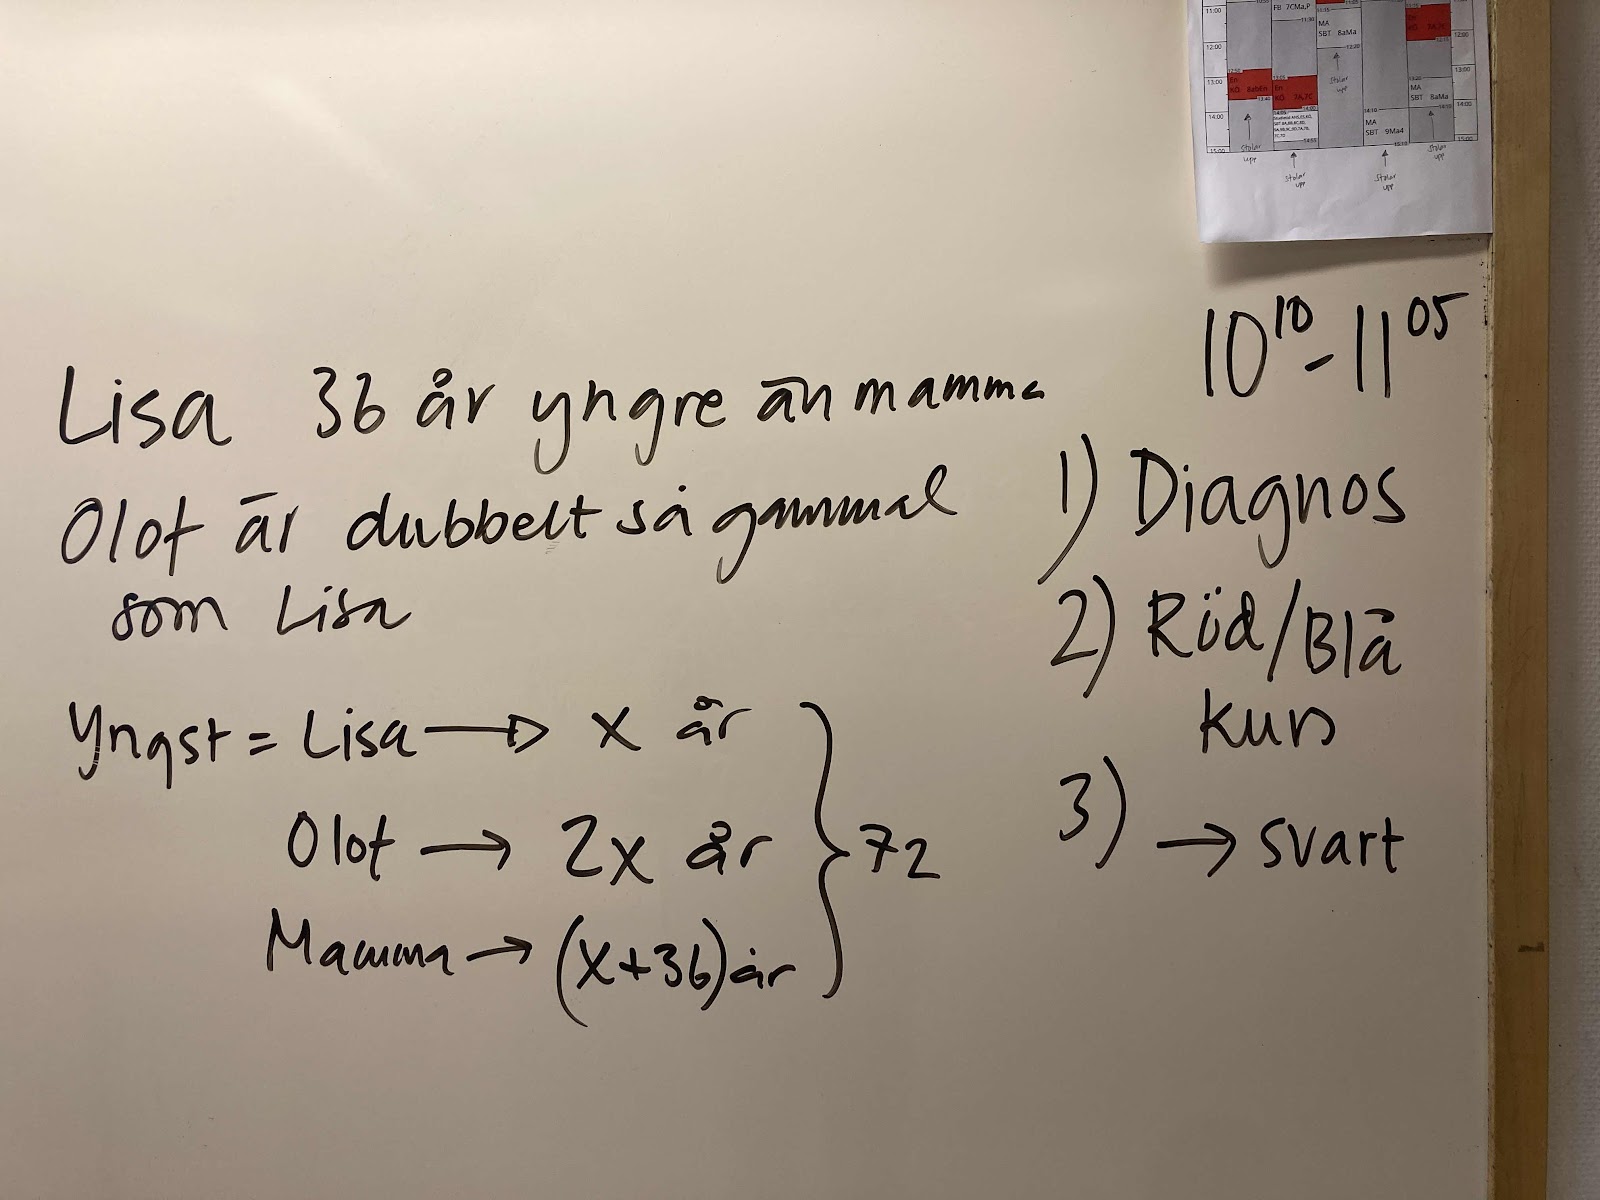 Lisa 36 år yngre än mamma
Olof är dubbelt så gammal
som Lisa
Yngst = Lisa → x år
Olof → 2x år
Mamma → (x+36) år
} 72
10¹⁰ - 11⁰⁵
1) Diagnos
2) Röd/Blå
kurs
3) → svart
11:00
12:00
13:00
14:00
15:00
FB 7CMa,P
11:30
MA
SBT 8aMa
12:20
En
KÖ 8abEn
13:40
13:05
En
KÖ 7A,7C
14:00
14:55
14:10
MA
SBT 9Ma4
15:10
MA
SBT 8aMa
11:00
12:00
13:00
14:00
15:00
Stolar
upp
Stolar
upp
Stolar
upp
Stolar
upp
Stolar
upp